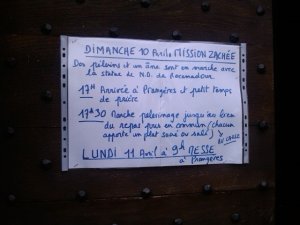 DIMANCHE 10 Avril, MISSION ZACHÉE
Des pèlerins et un âne sont en marche avec
la statue de N.D. de Rocamadour.
17H Arrivée à Prangères et petit temps
de prière
17H30 Marche pèlerinage jusqu'au
du repas pris en commun (chacun
apporte un plat salé ou salé)
LUNDI 11 Avril à 9h MESSE
à Prangères